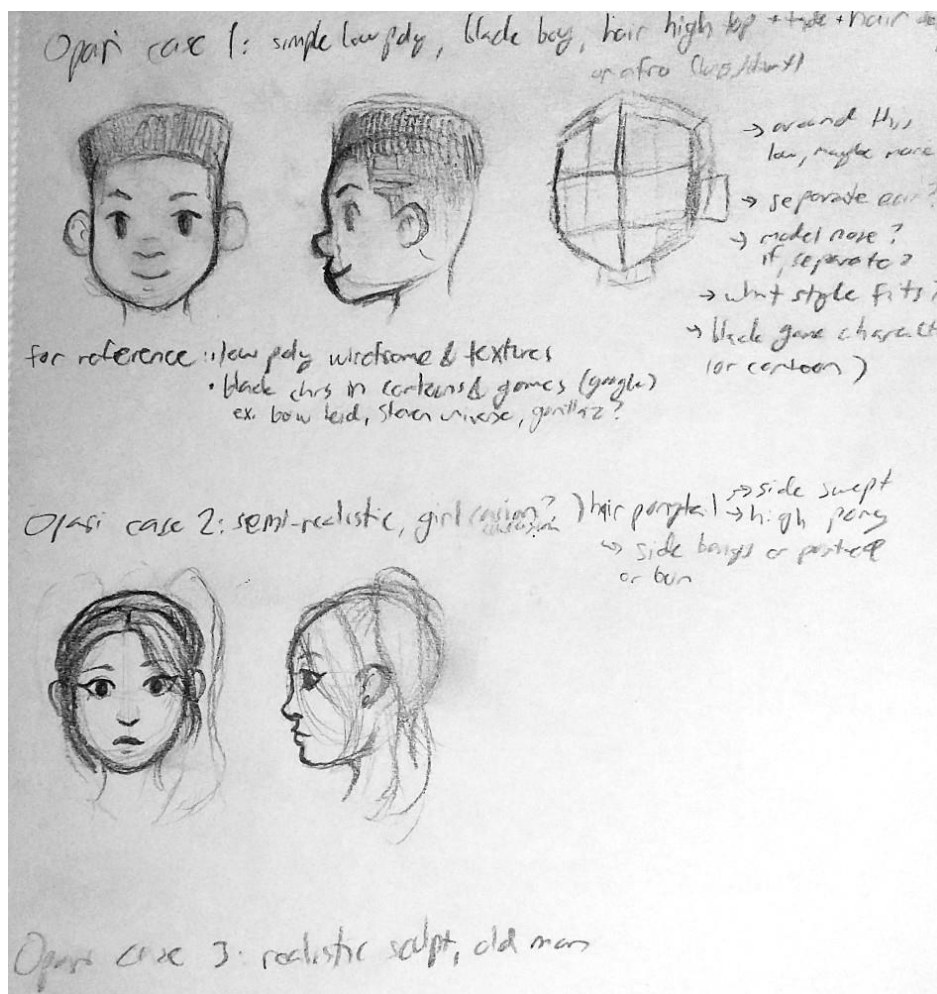 Opari case 1: simple low poly, black boy, hair high top + fade + hair
or afro
→ around this
low, maybe more
→ separate ear?
→ model nose?
if, separate?
→ what style fits?
→ black game charact
(or cartoon)
for reference: low poly wireframe & textures
• black chrs in cartoons & games (google)
ex. bow kid, steven universe, gorillaz?
Opari case 2: semi-realistic, girl ) hair ponytail → side swept
→ high pony
→ side bangs or
or bun
Opari case 3: realistic sculpt, old man